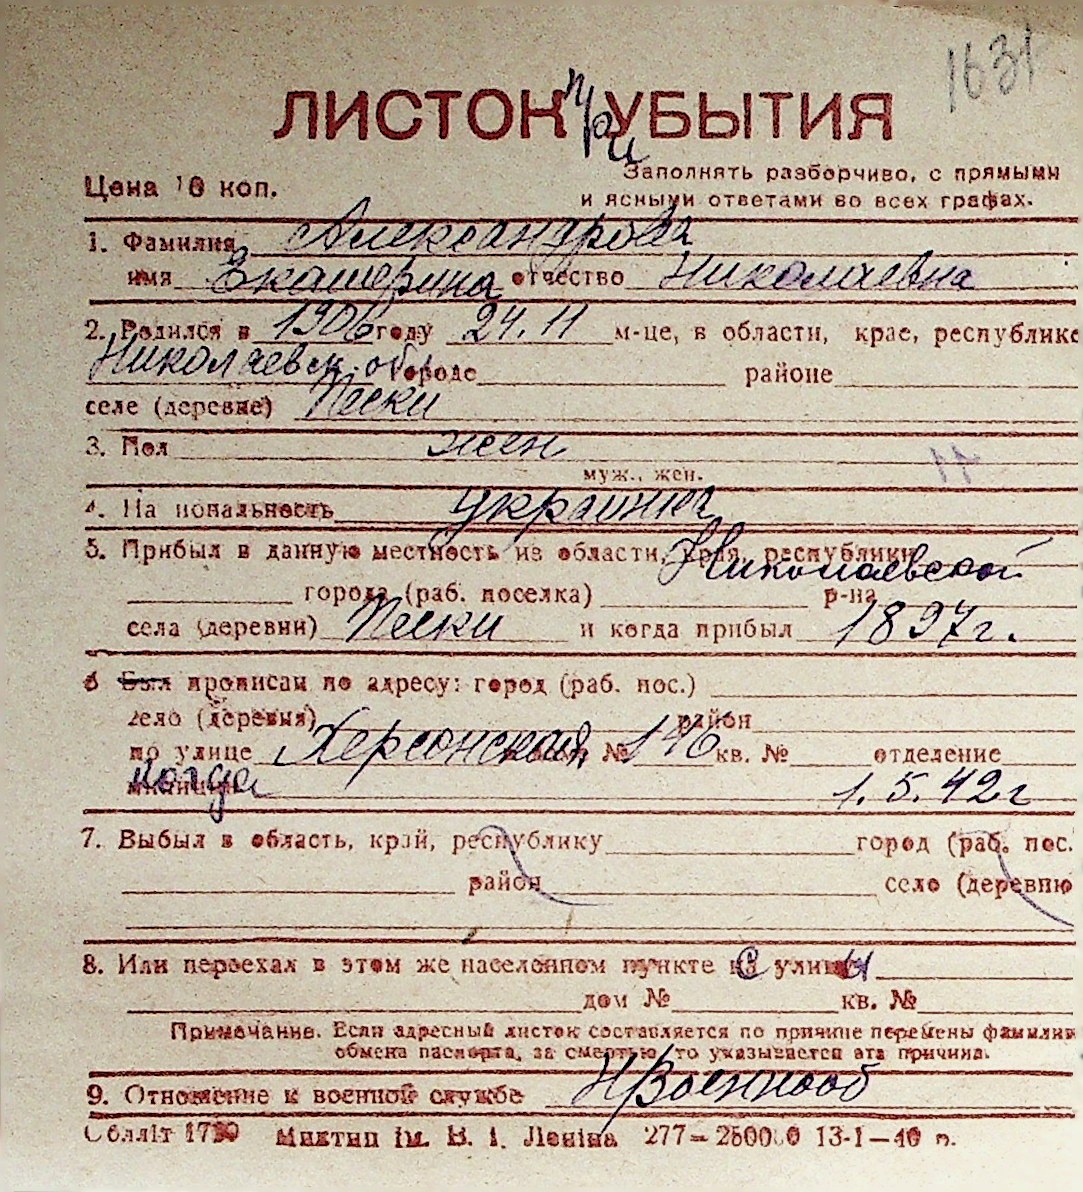 1631
ЛИСТОК при УБЫТИЯ
Заполнять разборчиво, с прямыми
Цена 10 коп.
и ясными ответами во всех графах.
1. Фамилия Александрова
имя Екатерина отчество Николаевна
2. Родился в 1906 году 24.11 м-це, в области, крае, республике
Николаевск. обл. городе районе
селе (деревне) Пески
3. Пол жен
муж., жен.
4. На иональность украинка
5. Прибыл в данную местность из области, края, республики Николаевской
города (раб. поселка) р-на
села (деревни) Пески и когда прибыл 1897 г.
6 Был прописан по адресу: город (раб. пос.)
село (деревня) район
по улице Херсонская № 146 кв. № отделение
когда 1.5.42 г
7. Выбыл в область, край, республику город (раб. пос.
район село (деревню
8. Или переехал в этом же населенном пункте с улицы
дом № кв. №
Примечание. Если адресный листок составляется по причине перемены фамилии
обмена паспорта, за смертью, то указывается эта причина.
9. Отношение к военной службе Н/Военнооб
Обллiт Миктип iм. В. I. Ленiна 277— 250000 13-I—40 р.